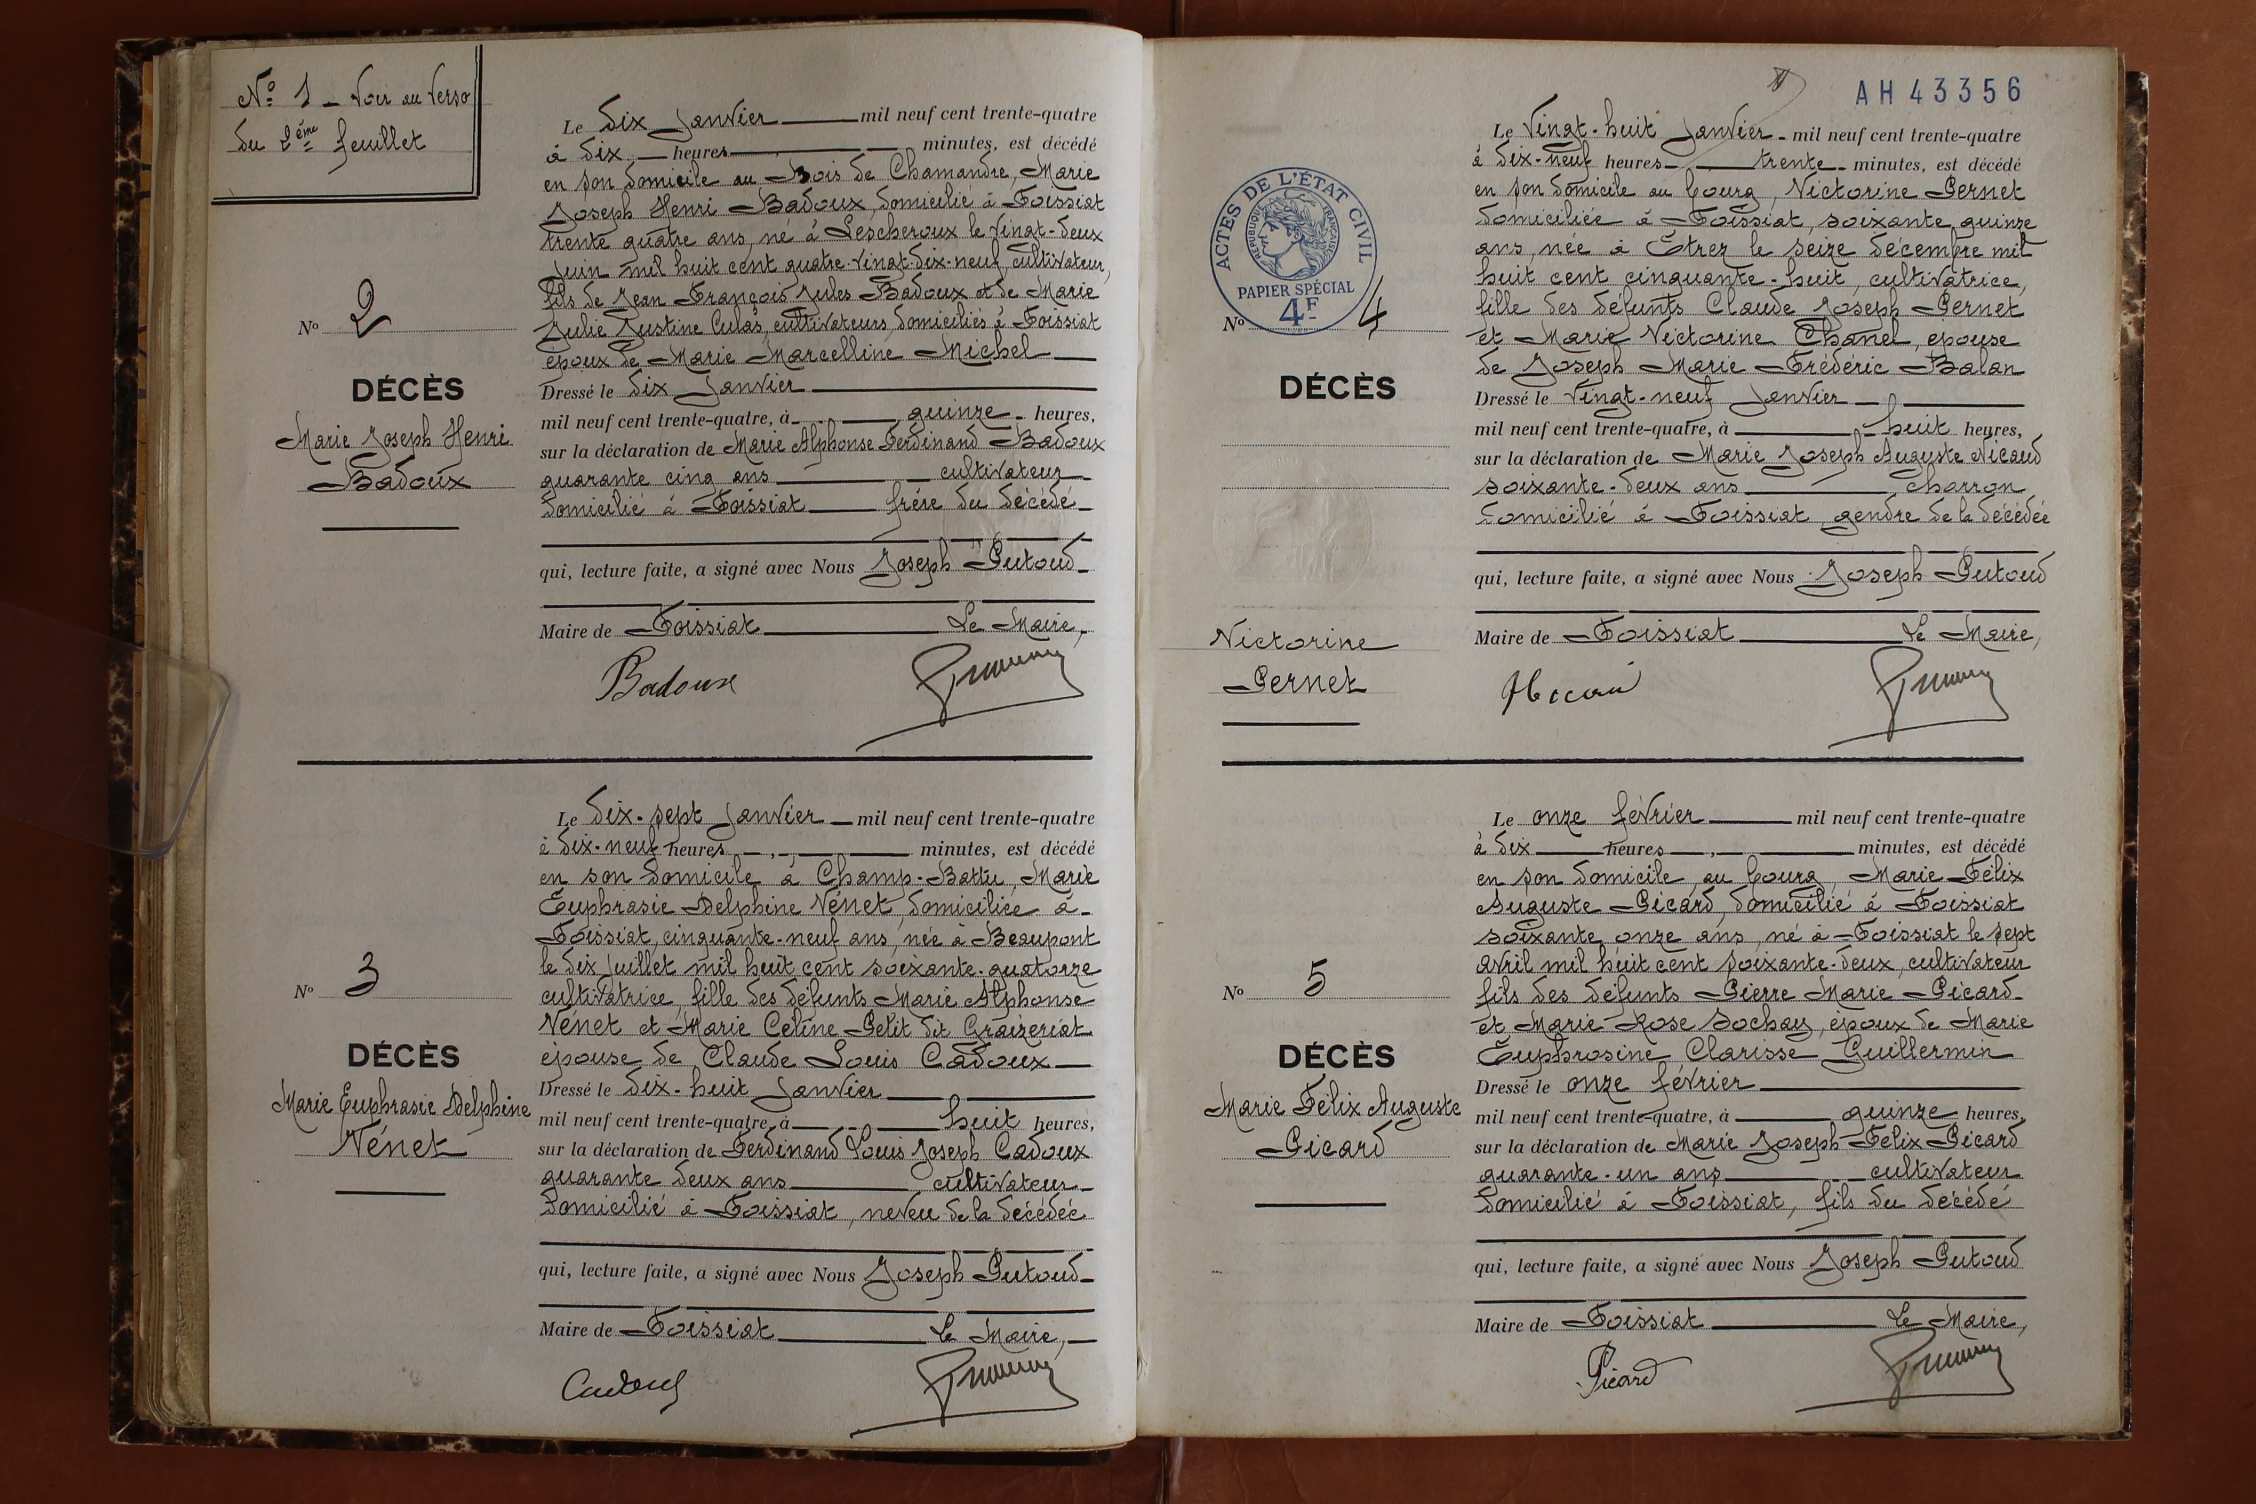 Nº 1 - Voir au Verso
du 2ème feuillet
Le dix Janvier mil neuf cent trente-quatre
à dix heures minutes, est décédé
en son domicile au Bois de Chamandre, Marie
Joseph Henri Badoux, domicilié à Foissiat
trente quatre ans, né à Lescheroux le vingt-deux
Juin mil huit cent quatre-vingt-dix-neuf, cultivateur,
fils de Jean François Jules Badoux et de Marie
Julie Justine Culas, cultivateurs, domiciliés à Foissiat
époux de Marie Marcelline Michel
Dressé le dix Janvier
mil neuf cent trente-quatre, à quinze heures,
sur la déclaration de Marie Alphonse Ferdinand Badoux
quarante cinq ans cultivateur
domicilié à Foissiat frère du décédé
qui, lecture faite, a signé avec Nous Joseph Putoud
Maire de Foissiat Le Maire,
Badoux
Nº 2
DÉCÈS
Marie Joseph Henri
Badoux
Le dix-sept Janvier mil neuf cent trente-quatre
à dix-neuf heures minutes, est décédé
en son domicile à Champ-Battu, Marie
Euphrasie Delphine Vénet, domiciliée à
Foissiat, cinquante-neuf ans, née à Beaupont
le dix Juillet mil huit cent soixante-quatorze
cultivatrice, fille des défunts Marie Alphonse
Vénet et Marie Celine Petit dit Graizeriat
épouse de Claude Louis Cadoux
Dressé le dix-huit Janvier
mil neuf cent trente-quatre, à huit heures,
sur la déclaration de Ferdinand Louis Joseph Cadoux
quarante deux ans cultivateur
domicilié à Foissiat, neveu de la décédée
qui, lecture faite, a signé avec Nous Joseph Putoud
Maire de Foissiat Le Maire,
Nº 3
DÉCÈS
Marie Euphrasie Delphine
Vénet
AH 43356
Le Vingt-huit Janvier mil neuf cent trente-quatre
à dix-neuf heures trente minutes, est décédé
en son domicile au bourg, Victorine Pernet
domiciliée à Foissiat, soixante quinze
ans, née à Etrez le seize décembre mil
huit cent cinquante-huit, cultivatrice,
fille des défunts Claude Joseph Pernet
et Marie Victorine Chanel, épouse
de Joseph Marie Frédéric Balan
Dressé le Vingt-neuf Janvier
mil neuf cent trente-quatre, à huit heures,
sur la déclaration de Marie Joseph Auguste Nicaud
soixante-deux ans charron
domicilié à Foissiat, gendre de la décédée
qui, lecture faite, a signé avec Nous Joseph Putoud
Maire de Foissiat Le Maire,
ACTES DE L'ÉTAT CIVIL
RÉPUBLIQUE FRANÇAISE
PAPIER SPÉCIAL
4F
Nº 4
DÉCÈS
Victorine
Pernet
Le onze février mil neuf cent trente-quatre
à dix heures minutes, est décédé
en son domicile, au bourg, Marie Félix
Auguste Picard, domicilié à Foissiat
soixante onze ans, né à Foissiat le sept
avril mil huit cent soixante-deux, cultivateur
fils des défunts Pierre Marie Picard
et Marie Rose Sochay, époux de Marie
Euphrosine Clarisse Guillermin
Dressé le onze février
mil neuf cent trente-quatre, à quinze heures,
sur la déclaration de Marie Joseph Félix Picard
quarante-un ans cultivateur
domicilié à Foissiat, fils du décédé
qui, lecture faite, a signé avec Nous Joseph Putoud
Maire de Foissiat Le Maire,
Picard
Nº 5
DÉCÈS
Marie Félix Auguste
Picard